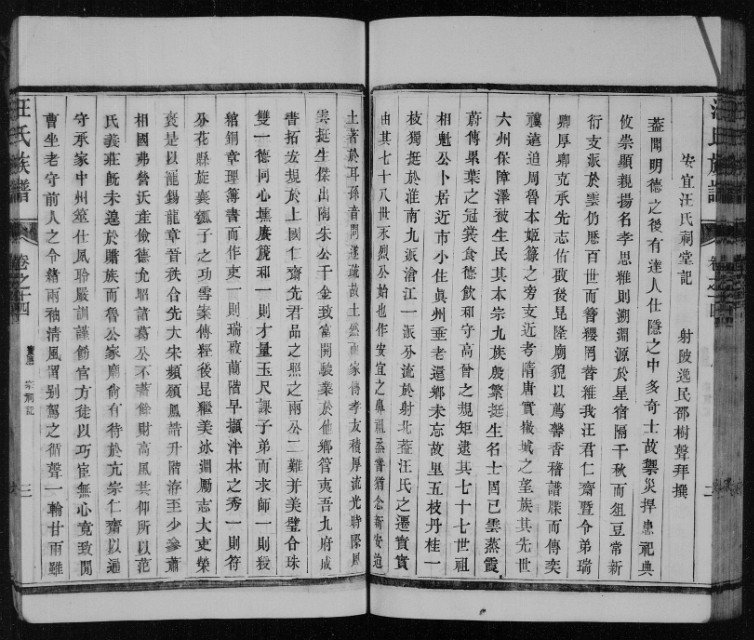 安宜汪氏祠堂記
射陂逸民邵樹聲拜撰
蓋聞明德之後有達人仕隱之中多奇士故禦災捍患祀典
攸崇顯親揚名孝思雅則溯淵源於星宿隔千秋而俎豆常新
衍支派於雲仍歷百世而簪纓罔替維我汪君仁齋暨令弟瑞
卿厚卿克承先志佑啟後昆隆廟貌以薦馨香稽譜牒而傳奕
禩遠追周魯本姬籙之旁支近考隋唐實 城之望族其先世
六州保障澤被生民其本宗九族殷繁挺生名士固已雲蒸霞
蔚傳累葉之冠裳食德飲和守高曾之規矩逮其七十七世祖
相魁公卜居近市小住真州垂老還鄉未忘故里五枝丹桂一
枝獨挺於淮南九派滄江一派分流於射北蓋汪氏之遷實實
由其七十八世永烈公始也作安宜之鼻祖蒸嘗猶念新安
土著於耳孫音問遂疏故土然而家傳孝友積厚流光時際風
雲挺生傑出陶朱公千金致富開駿業於他鄉管夷吾九府成
書拓宏規於上國仁齋先君品之照之兩公二難并美璧合珠
雙一德同心壎篪 和一則才量玉尺課子弟而求師一則毅
綰銅章理簿書而作吏一則瑞啟蘭階早擷泮林之秀一則符
分花縣旋襄狐子之功雪案傳經後昆繼美冰淵勵志大吏榮
褒是以寵錫龍章晉秩合先大宋頻頒鳳誥升階洊至少參蕭
相國弗營沃產儉德允昭諸葛公不蓄餘財高風共仰所以范
氏義莊旣未遑於贍族而魯公家廟尙有待於亢宗仁齋以過
守承家中州筮仕風聆嚴訓謹飭官方徒以巧宦無心竟致閒
曹坐老守前人之令緒兩袖清風遲别駕之循聲一輪甘雨雖
汪氏族譜
卷之十四
宗祠記
三
汪氏族譜
卷之十四
二